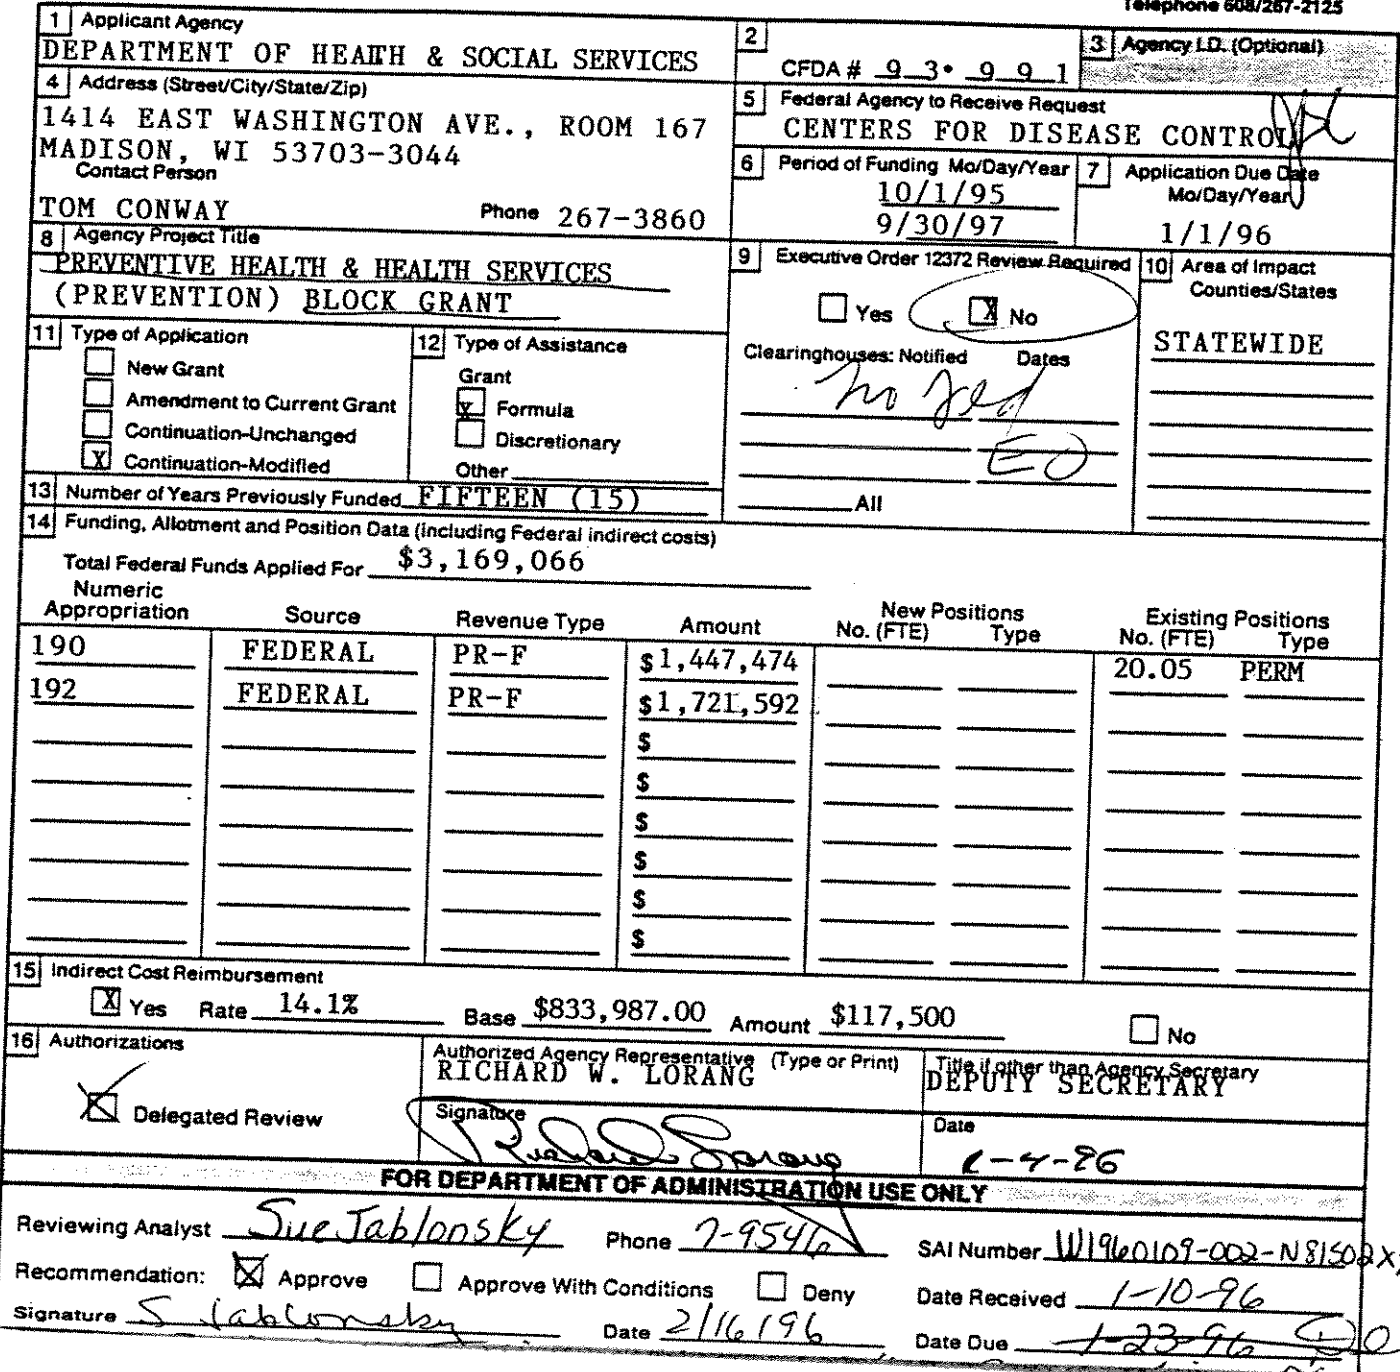 Telephone 608/267-2125
1 Applicant Agency
DEPARTMENT OF HEALTH & SOCIAL SERVICES
2
CFDA # 93.991
3 Agency I.D. (Optional)
4 Address (Street/City/State/Zip)
1414 EAST WASHINGTON AVE., ROOM 167
MADISON, WI 53703-3044
Contact Person
TOM CONWAY Phone 267-3860
5 Federal Agency to Receive Request
CENTERS FOR DISEASE CONTROL
6 Period of Funding Mo/Day/Year
10/1/95
9/30/97
7 Application Due Date
Mo/Day/Year
1/1/96
8 Agency Project Title
PREVENTIVE HEALTH & HEALTH SERVICES
(PREVENTION) BLOCK GRANT
9 Executive Order 12372 Review Required
Yes X No
Clearinghouses: Notified Dates
no fed
EO
All
10 Area of Impact
Counties/States
STATEWIDE
11 Type of Application
New Grant
Amendment to Current Grant
Continuation-Unchanged
X Continuation-Modified
12 Type of Assistance
Grant
X Formula
Discretionary
Other
13 Number of Years Previously Funded FIFTEEN (15)
14 Funding, Allotment and Position Data (including Federal indirect costs)
Total Federal Funds Applied For $3,169,066
Numeric
Appropriation Source Revenue Type Amount New Positions
No. (FTE) Type Existing Positions
No. (FTE) Type
190 FEDERAL PR-F $1,447,474 20.05 PERM
192 FEDERAL PR-F $1,721,592
$
$
$
$
$
$
15 Indirect Cost Reimbursement
X Yes Rate 14.1% Base $833,987.00 Amount $117,500 No
16 Authorizations
X Delegated Review
Authorized Agency Representative (Type or Print)
RICHARD W. LORANG
Title if other than Agency Secretary
DEPUTY SECRETARY
Signature Richard Lorang
Date
1-4-96
FOR DEPARTMENT OF ADMINISTRATION USE ONLY
Reviewing Analyst Sue Jablonsky Phone 7-9546 SAI Number WI960109-002-N81502X
Recommendation: X Approve Approve With Conditions Deny Date Received 1-10-96
Signature S Jablonsky Date 2/16/96 Date Due 1-23-96